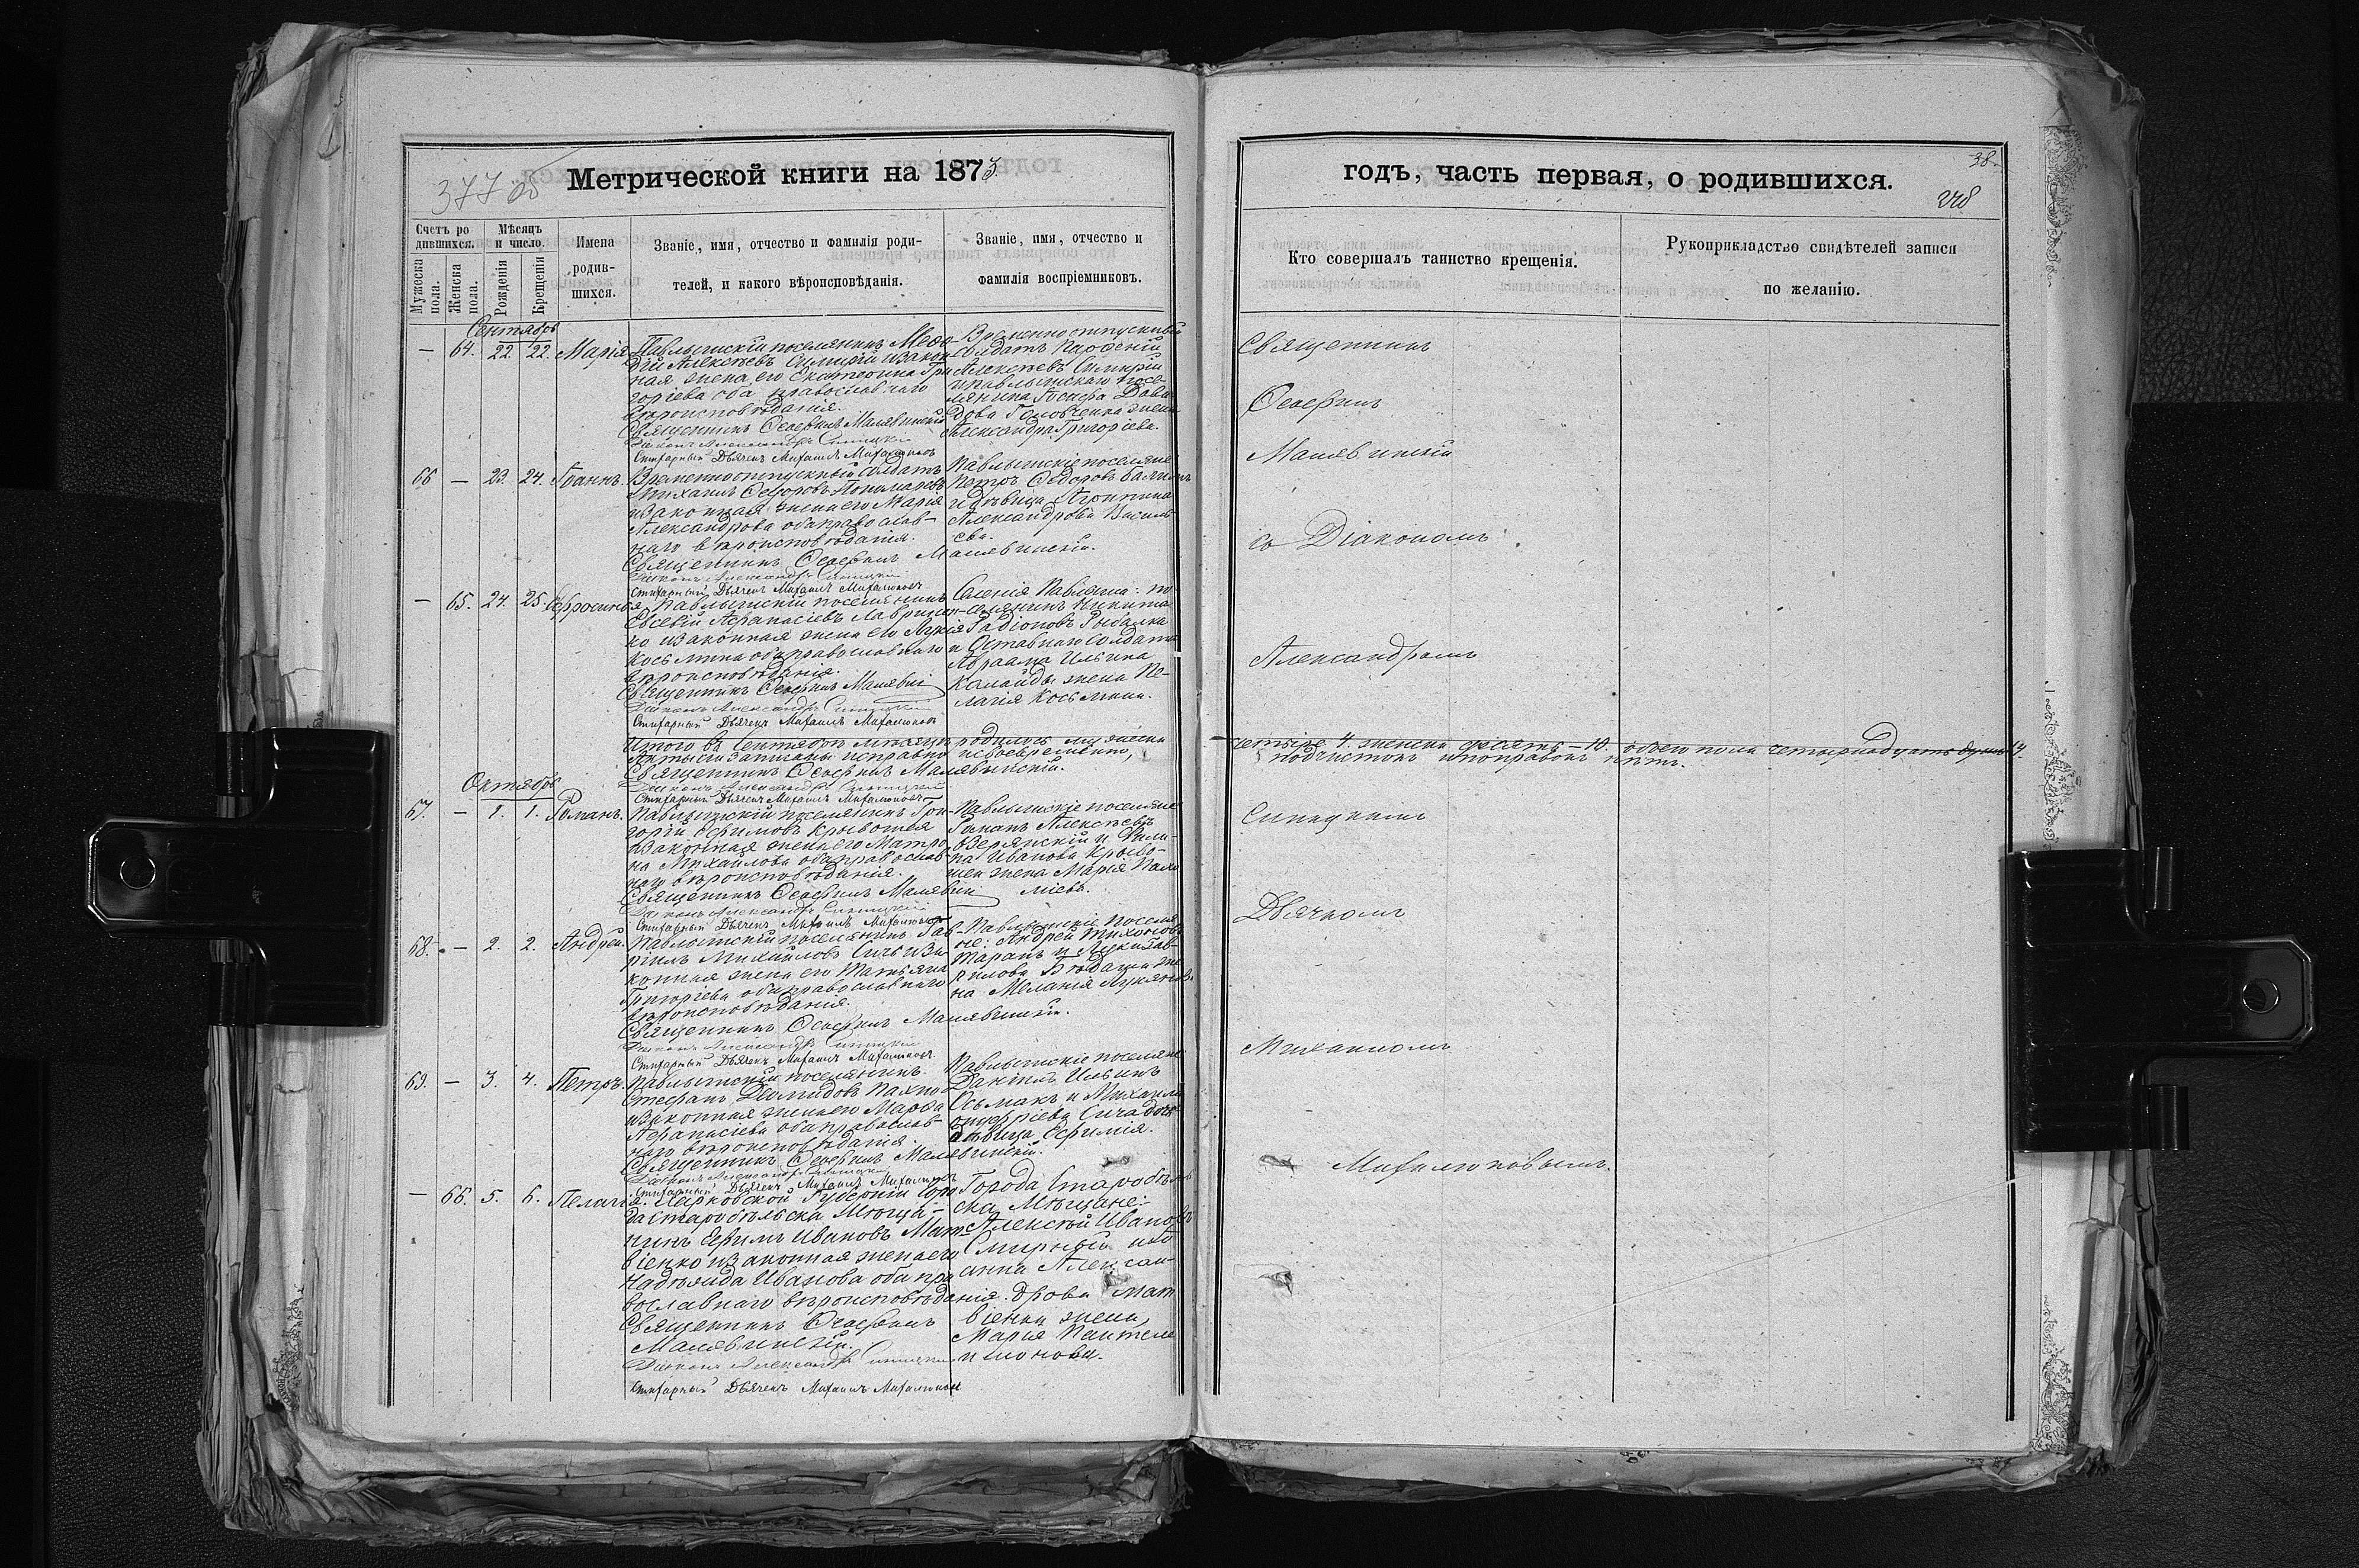 Метрической книги на 1873
Счетъ ро дившихся.
Мѣсяцъ и число.
Мужеска пола.
Женска пола.
Рожденія
Крещенія
Имена родив-шихся.
Званіе, имя, отчество и фамилія роди-
телей, и какого вѣроисповѣданія.
Званіе, имя, отчество и
фамилія воспріемниковъ.
Сентябрь
— 64. 22 22. Марія
Павлышскій поселянинъ Меѳо-
дій Алексѣевъ и закон-
ная жена его Екатерина Гри
горіева оба православнаго
вѣроисповѣданія.
Священникъ Малявинскій
Діаконъ Александръ Синицкій
Стихарный Дьячекъ Михаилъ Михалюковъ
Временноотпускный
солдатъ
Алексѣевъ
и павлышскаго посе-
лянина Іосифа Дави
дова жена
Александра Григоріева.
66 — 23. 24. Іоаннъ.
Временноотпускный солдатъ
Михаилъ Ѳедоровъ Пономаревъ
и законная жена его Марія
Александрова оба православ-
наго вѣроисповѣданія.
Священникъ Малявинскій.
Діаконъ Александръ Синицкій
Стихарный Дьячекъ Михаилъ Михалюковъ
Павлышскіе поселяне
Петръ Ѳедоровъ
и дѣвица Агрипина
Александрова Василь-
ева.
— 65. 24. 25. Ефросинія
Павлышскій поселянинъ
Евсевій Аѳанасіевъ Лавринен-
ко и законная жена его Лукія
Косьмина оба православнаго
вѣроисповѣданія.
Священникъ
Діаконъ Александръ Синицкій
Стихарный Дьячекъ Михаилъ Михалюковъ
Селенія Павлыша: по-
селянинъ Никита
Радіоновъ Рыбалка
и Отставнаго солдата
Авраама Ильина
Калайды жена Пе-
лагія Косьмина.
Итого въ Сентябрѣ мѣсяцѣ родилось мужеска
Акты сіи записаны исправно и своевременно,
Священникъ Малявинскій.
Діаконъ Александръ Синицкій
Стихарный Дьячекъ Михаилъ Михалюковъ
Октябрь
67. — 1. 1. Романъ.
Павлышскій поселянинъ Гри-
горій Ефимовъ Крывошея
и законная жена его Матро
на Михайлова оба православ-
наго вѣроисповѣданія.
Священникъ
Діаконъ Александръ Синицкій
Стихарный Дьячекъ Михаилъ Михалюковъ
Павлышскіе поселяне
Романъ Алексѣевъ
Озерянскій и Фили-
па Иванова Крыво-
шеи жена Марія Пахо
міева.
68. — 2. 2. Андрей.
Павлышскій поселянинъ Гав-
рилъ Михайловъ Сичь и за
конная жена его Татьяна
Григоріева оба православнаго
вѣроисповѣданія.
Священникъ Малявинскій.
Діаконъ Александръ Синицкій
Стихарный Дьячекъ Михаилъ Михалюковъ
Павлышскіе поселя
не: Андрей Тихоновъ
Таранъ и Луки Гав-
рилова же
на Меланія Лукянова.
69. — 3. 4. Петръ.
Павлышскій поселянинъ.
Стефанъ Демидовъ
и законная жена его Марѳа
Аѳанасіева оба православ-
наго вѣроисповѣданія.
Священникъ Малявинскій.
Діаконъ Александръ Синицкій
Стихарный Дьячекъ Михаилъ Михалюковъ
Павлышскіе поселяне
Даніилъ Ильинъ
Осьмакъ и Михаила
Онуфріева Сича дочь
дѣвица Ефимія.
— 66. 5. 6. Пелагія.
Харковской Губерніи Горо
да Старобѣльска Мѣща-
нинъ Ефимъ Ивановъ Мат-
віенко и законная жена его
Надежда Иванова оба пра
вославнаго вѣроисповѣданія.
Священникъ
Малявинскій.
Діаконъ Александръ Синицкій
Стихарный Дьячекъ Михаилъ Михалюковъ
Города Старобѣль
ска Мѣщане:
Алексѣй Ивановъ
Смирный и
Алексан-
дрова Мат
віенки жена,
Марія Пантеле
имонова.
годъ, часть первая, о родившихся.
38.
248
Кто совершалъ таинство крещенія.
Рукоприкладство свидѣтелей записи
по желанію.
Священникъ
Малявинскій
съ Діакономъ
Александромъ
четыре 4. женска десять — 10. обоего пола четырнадцать душъ 14.
подчистокъ и поправокъ нѣтъ.
Синицкимъ
Дьячкомъ
Михаиломъ
Михалюковымъ.